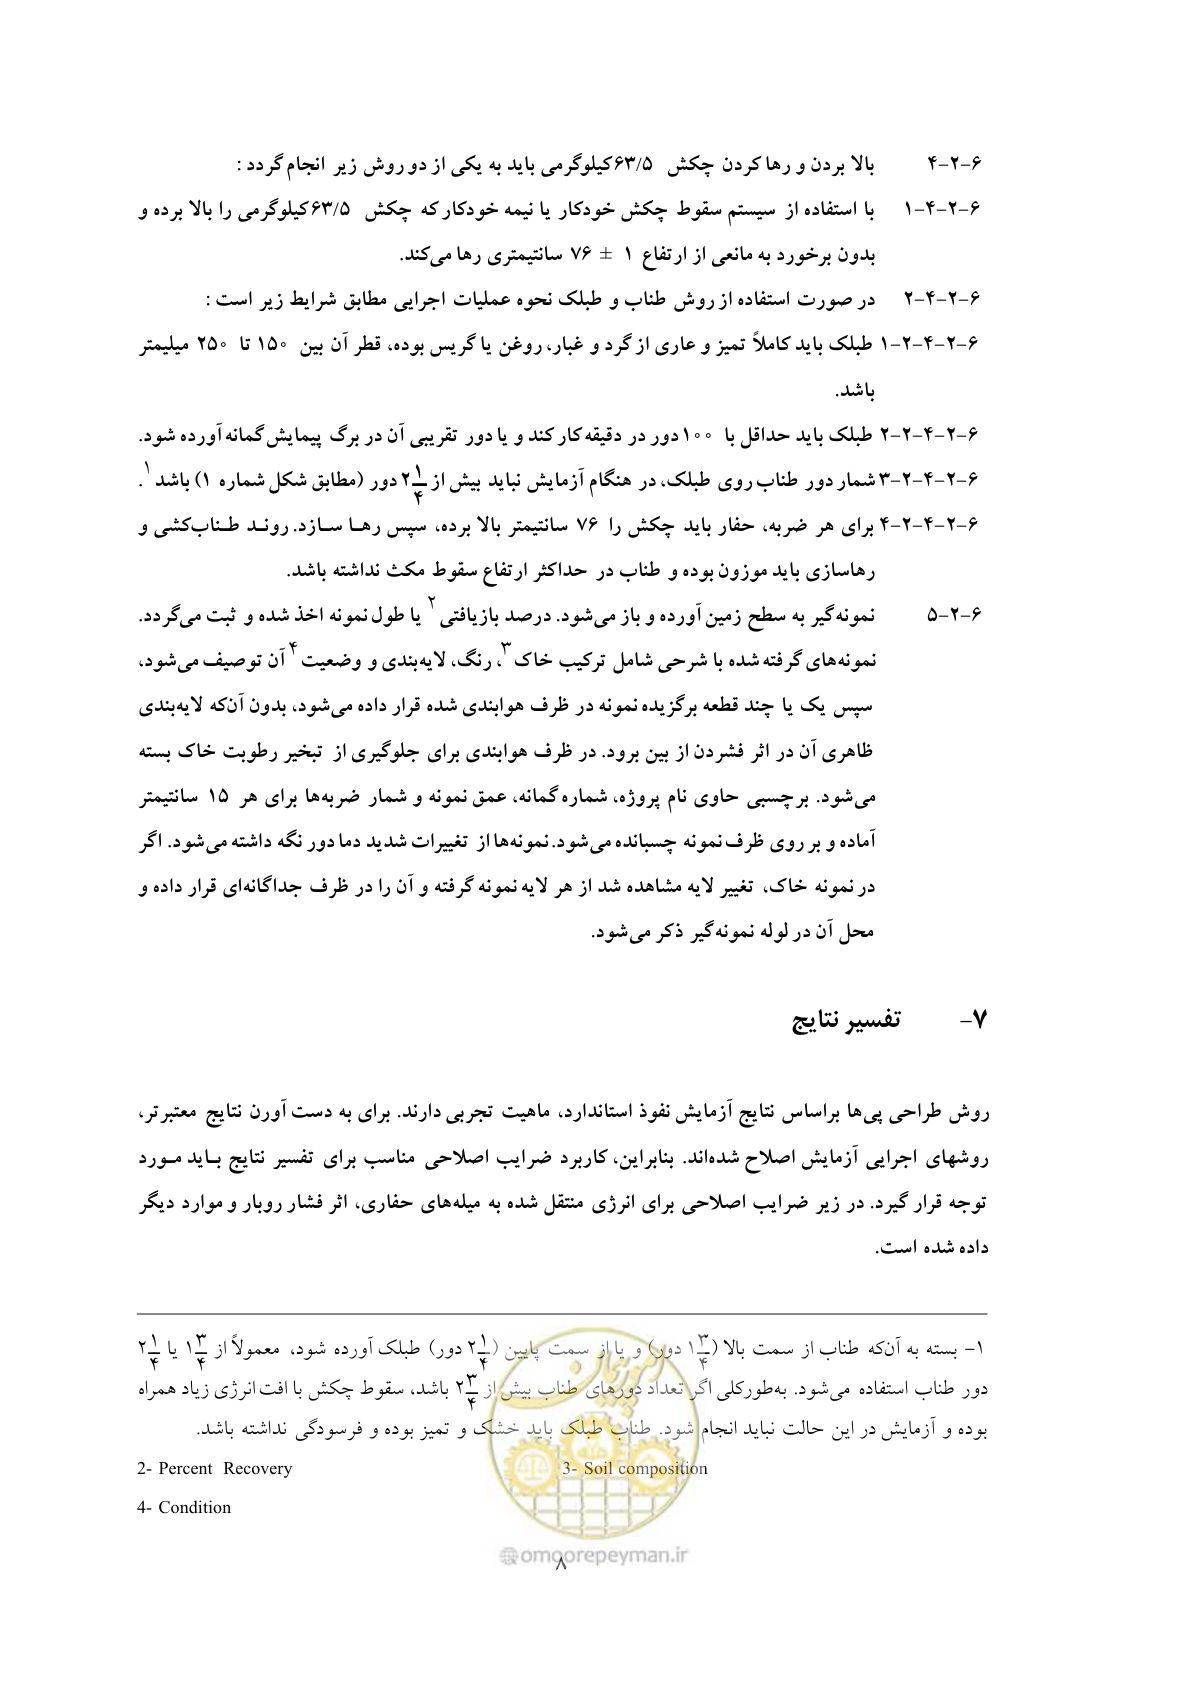 ۶-۲-۴ بالا بردن و رها کردن چکش ۶۳/۵ کیلوگرمی باید به یکی از دو روش زیر انجام گردد :
۶-۲-۴-۱ با استفاده از سیستم سقوط چکش خودکار یا نیمه خودکار که چکش ۶۳/۵ کیلوگرمی را بالا برده و
بدون برخورد به مانعی از ارتفاع ۱ ± ۷۶ سانتیمتری رها می‌کند.
۶-۲-۴-۲ در صورت استفاده از روش طناب و طبلک نحوه عملیات اجرایی مطابق شرایط زیر است :
۶-۲-۴-۲-۱ طبلک باید کاملاً تمیز و عاری از گرد و غبار، روغن یا گریس بوده، قطر آن بین ۱۵۰ تا ۲۵۰ میلیمتر
باشد.
۶-۲-۴-۲-۲ طبلک باید حداقل با ۱۰۰ دور در دقیقه کار کند و یا دور تقریبی آن در برگ پیمایش گمانه آورده شود.
۶-۲-۴-۲-۳ شمار دور طناب روی طبلک، در هنگام آزمایش نباید بیش از ۲ ۱/۴ دور (مطابق شکل شماره ۱) باشد ۱.
۶-۲-۴-۲-۴ برای هر ضربه، حفار باید چکش را ۷۶ سانتیمتر بالا برده، سپس رهـا سـازد. رونـد طـناب‌کشی و
رهاسازی باید موزون بوده و طناب در حداکثر ارتفاع سقوط مکث نداشته باشد.
۶-۲-۵ نمونه‌گیر به سطح زمین آورده و باز می‌شود. درصد بازیافتی ۲ یا طول نمونه اخذ شده و ثبت می‌گردد.
نمونه‌های گرفته شده با شرحی شامل ترکیب خاک ۳، رنگ، لایه‌بندی و وضعیت ۴ آن توصیف می‌شود،
سپس یک یا چند قطعه برگزیده نمونه در ظرف هوابندی شده قرار داده می‌شود، بدون آن‌که لایه‌بندی
ظاهری آن در اثر فشردن از بین برود. در ظرف هوابندی برای جلوگیری از تبخیر رطوبت خاک بسته
می‌شود. برچسبی حاوی نام پروژه، شماره گمانه، عمق نمونه و شمار ضربه‌ها برای هر ۱۵ سانتیمتر
آماده و بر روی ظرف نمونه چسبانده می‌شود. نمونه‌ها از تغییرات شدید دما دور نگه داشته می‌شود. اگر
در نمونه خاک، تغییر لایه مشاهده شد از هر لایه نمونه گرفته و آن را در ظرف جداگانه‌ای قرار داده و
محل آن در لوله نمونه‌گیر ذکر می‌شود.
۷- تفسیر نتایج
روش طراحی پی‌ها براساس نتایج آزمایش نفوذ استاندارد، ماهیت تجربی دارند. برای به دست آورن نتایج معتبرتر،
روشهای اجرایی آزمایش اصلاح شده‌اند. بنابراین، کاربرد ضرایب اصلاحی مناسب برای تفسیر نتایج بـاید مـورد
توجه قرار گیرد. در زیر ضرایب اصلاحی برای انرژی منتقل شده به میله‌های حفاری، اثر فشار روبار و موارد دیگر
داده شده است.
۱- بسته به آن‌که طناب از سمت بالا (۱ ۳/۴ دور) و یا از سمت پایین (۲ ۱/۴ دور) طبلک آورده شود، معمولاً از ۱ ۳/۴ یا ۲ ۱/۴
دور طناب استفاده می‌شود. به‌طورکلی اگر تعداد دورهای طناب بیش از ۲ ۳/۴ باشد، سقوط چکش با افت انرژی زیاد همراه
بوده و آزمایش در این حالت نباید انجام شود. طناب طبلک باید خشک و تمیز بوده و فرسودگی نداشته باشد.
2- Percent Recovery 3- Soil composition
4- Condition
امورپیمان
@omoorepeyman.ir
۸